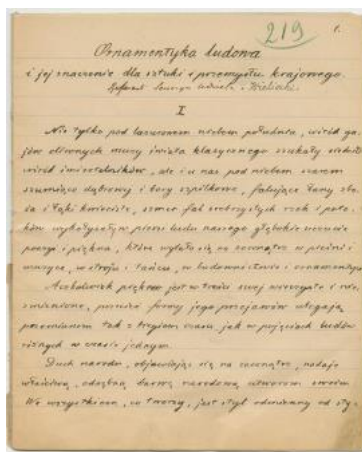 219
1.
Ornamentyka ludowa
i jej znaczenie dla sztuki i przemysłu krajowego.
Referat Seweryna Udzieli z Wieliczki.
I
Nie tylko pod lazurowem niebem południa, wśród ga-
jów oliwnych muzy świata klasycznego szukały siedzib
wśród śmiertelników, ale i u nas pod niebem szarem
szumiące dąbrowy i bory szpilkowe, falujące łany zbo-
ża i łąki kwieciste, szmer fal srebrzystych rzek i poto-
ków wykołysały w piersi ludu naszego głębokie uczucie
poezyi i piękna, które wylało się na zewnątrz w pieśni i
muzyce, w stroju i tańcu, w budownictwie i ornamentyce.
Aczkolwiek piękno jest w treści swej wieczyste i nie-
zmienne, przecież formy jego przejawów ulegają
przemianom tak z biegiem czasu jak w pojęciach ludów
różnych w czasie jednym.
Duch narodu, objawiając się na zewnątrz, nadaje
właściwą, odrębną barwę narodową utworom swoim.
We wszystkiem, co tworzy, jest styl odmienny od sty-